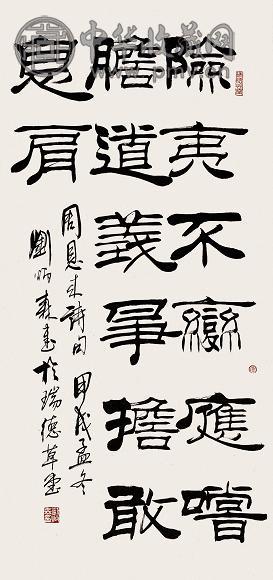 險夷不變應嘗
膽道義爭擔敢
息肩
周恩来詩句 甲戌孟冬
劉炳森書於瑞德草堂
中华收藏网